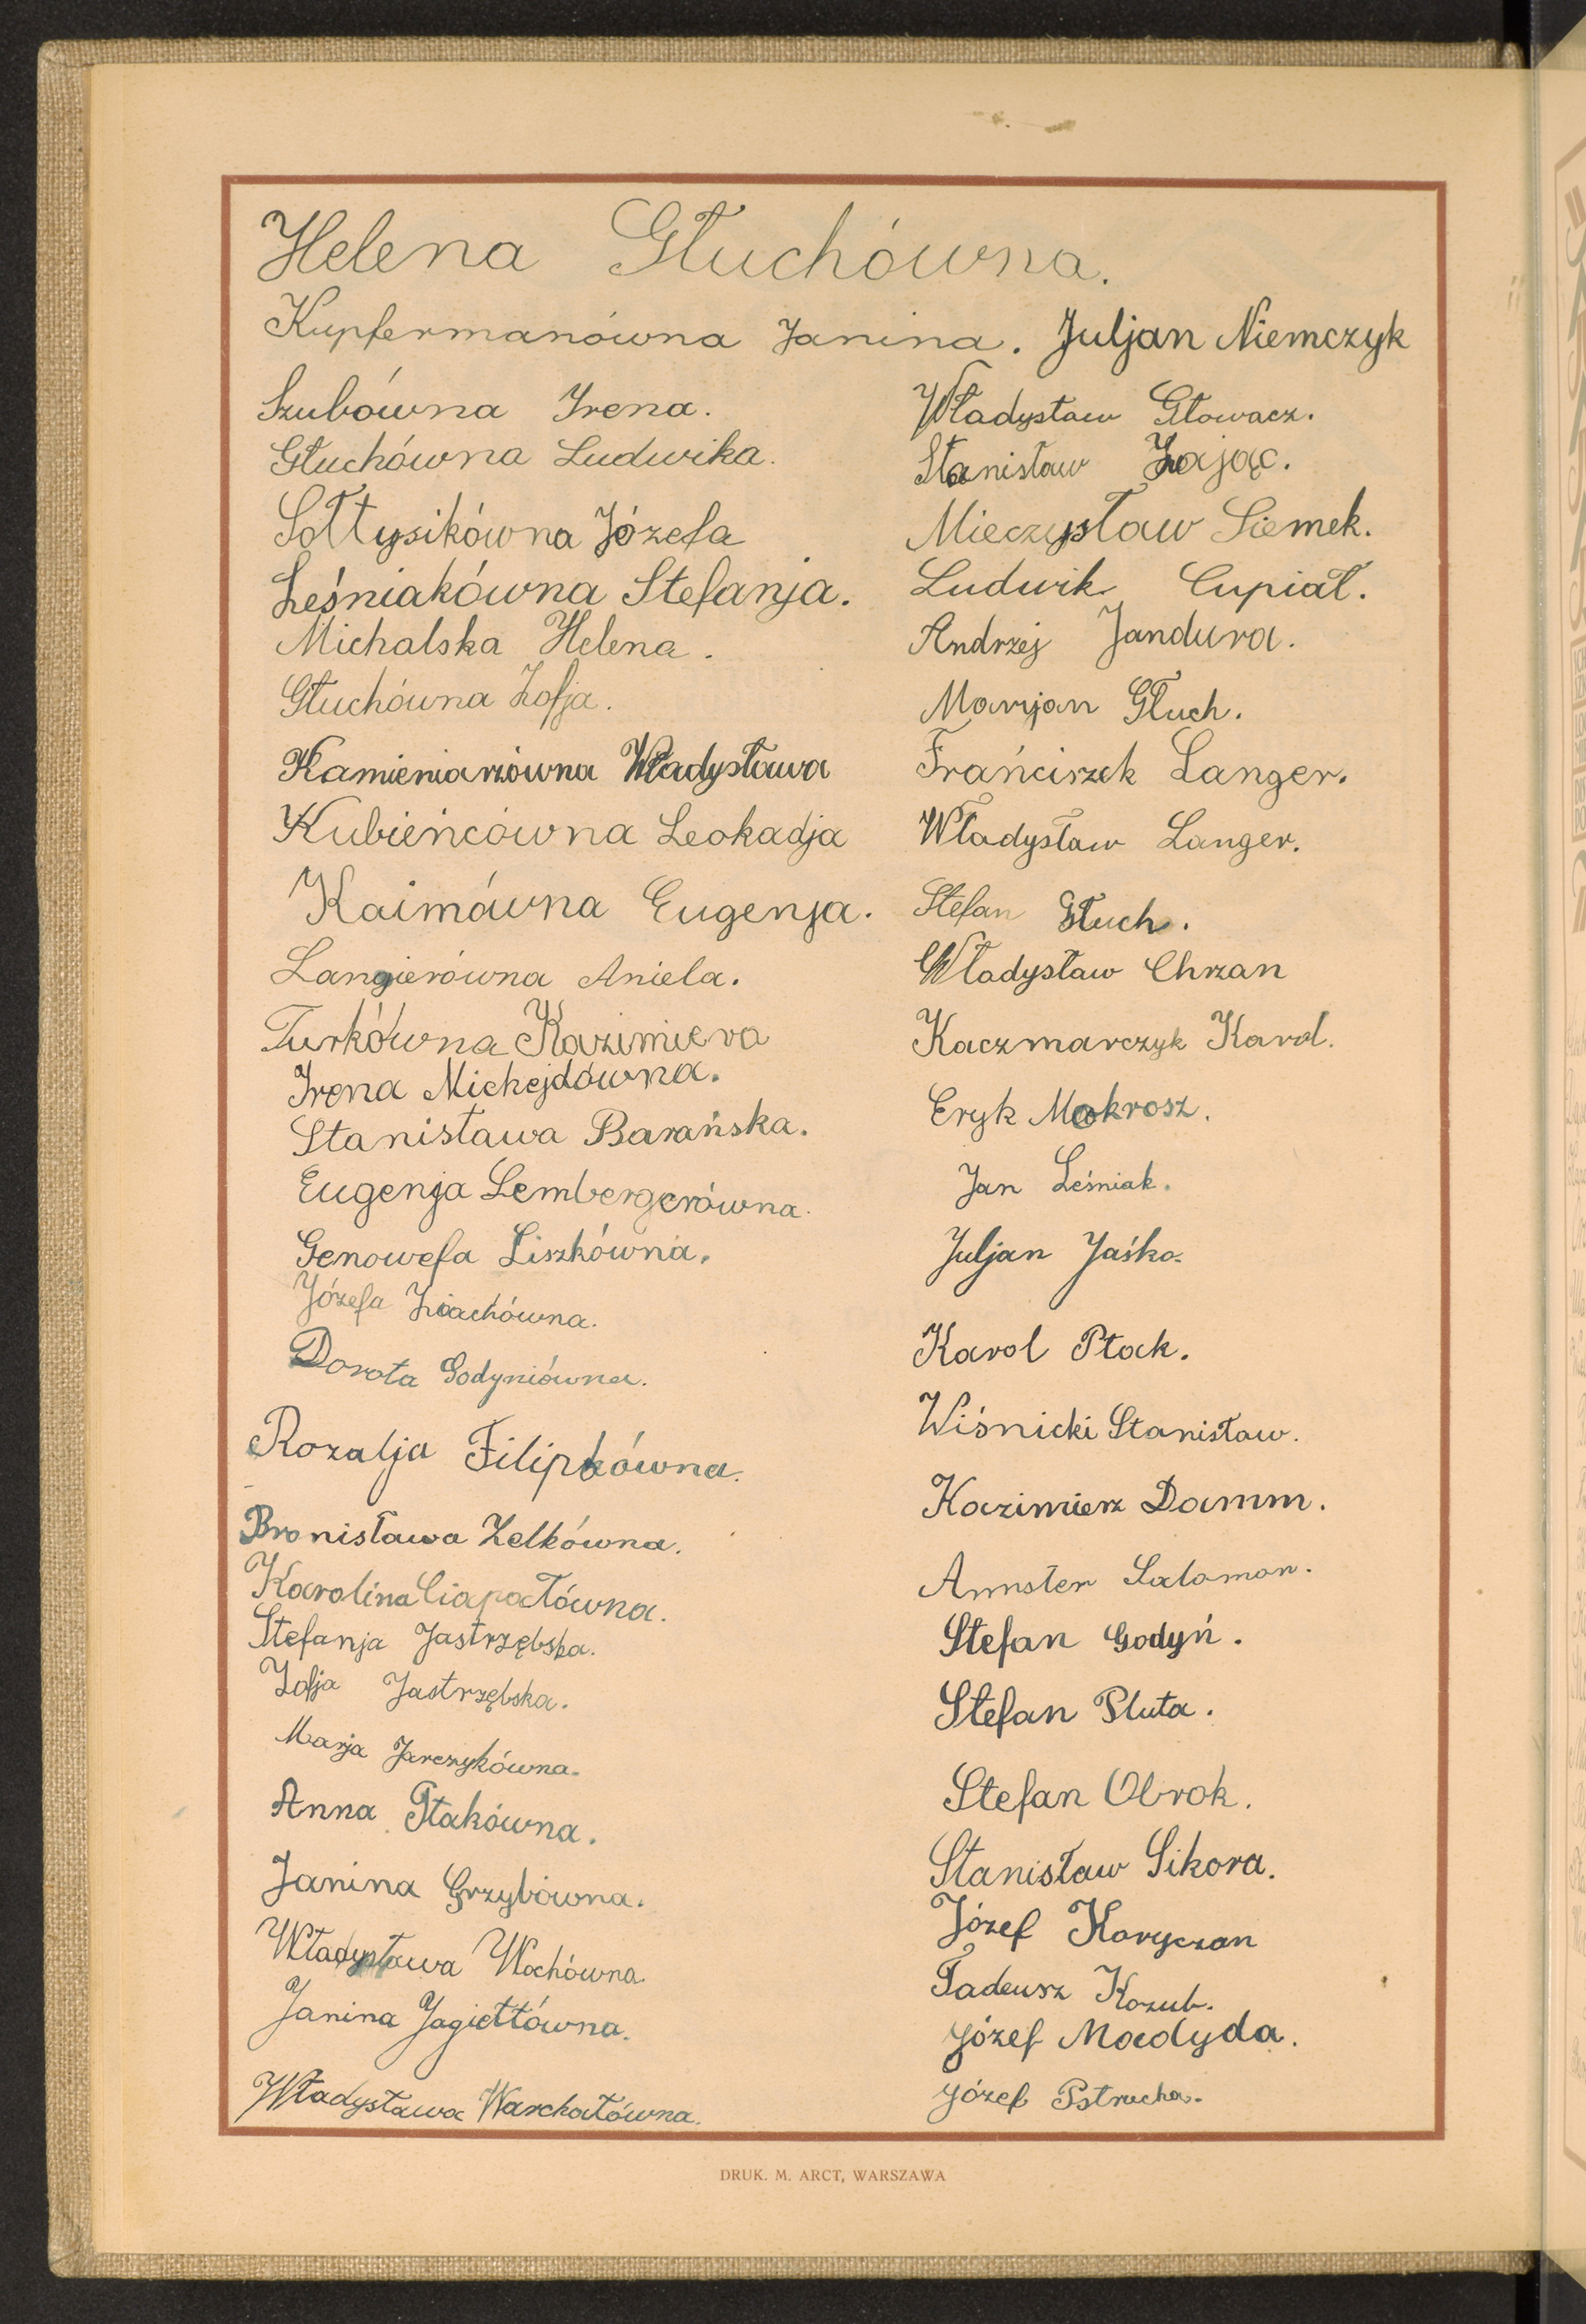 Helena Głuchówna.
Kupfermanówna Janina. Juljan Niemczyk
Szubówna Irena.
Głuchówna Ludwika.
Sołtysikówna Józefa
Leśniakówna Stefanja.
Michalska Helena.
Głuchówna Zofja.
Kamieniarzówna Władysława
Kubieńcówna Leokadja
Kaimówna Eugenja.
Langierówna Aniela.
Turkówna Kazimiera
Irena Michejdówna.
Stanisława Barańska.
Eugenja Lembergerówna.
Genowefa Liszkówna.
Józefa
Dorota Godyniówna.
Rozalja Filipkówna.
Bronisława Zelkówna.
Karolina Ciapałówna.
Stefanja Jastrzębska.
Zofja Jastrzębska.
Marja Jarczykówna.
Anna Ptakówna.
Janina Grzybówna.
Władysława Wochówna.
Janina Jagiełłówna.
Władysława Warchałówna.
Władysław Głowacz.
Stanisław Zając.
Mieczysław Siemek.
Ludwik Cupiał.
Andrzej Jandura.
Maryjan Głuch.
Frańciszek Langer.
Władysław Langer.
Stefan Głuch.
Władysław Chrzan
Kaczmarczyk Karol.
Eryk Mokrosz.
Jan Leśniak.
Juljan Jaśko.
Karol Ptak.
Wiśnicki Stanisław.
Kazimierz Damm.
Annster Salomon.
Stefan Godyń.
Stefan Pluta.
Stefan Obrok.
Stanisław Sikora.
Józef Koryczan
Tadeusz Kozub.
Józef Madyda.
Józef Pstrucha.
DRUK. M. ARCT, WARSZAWA